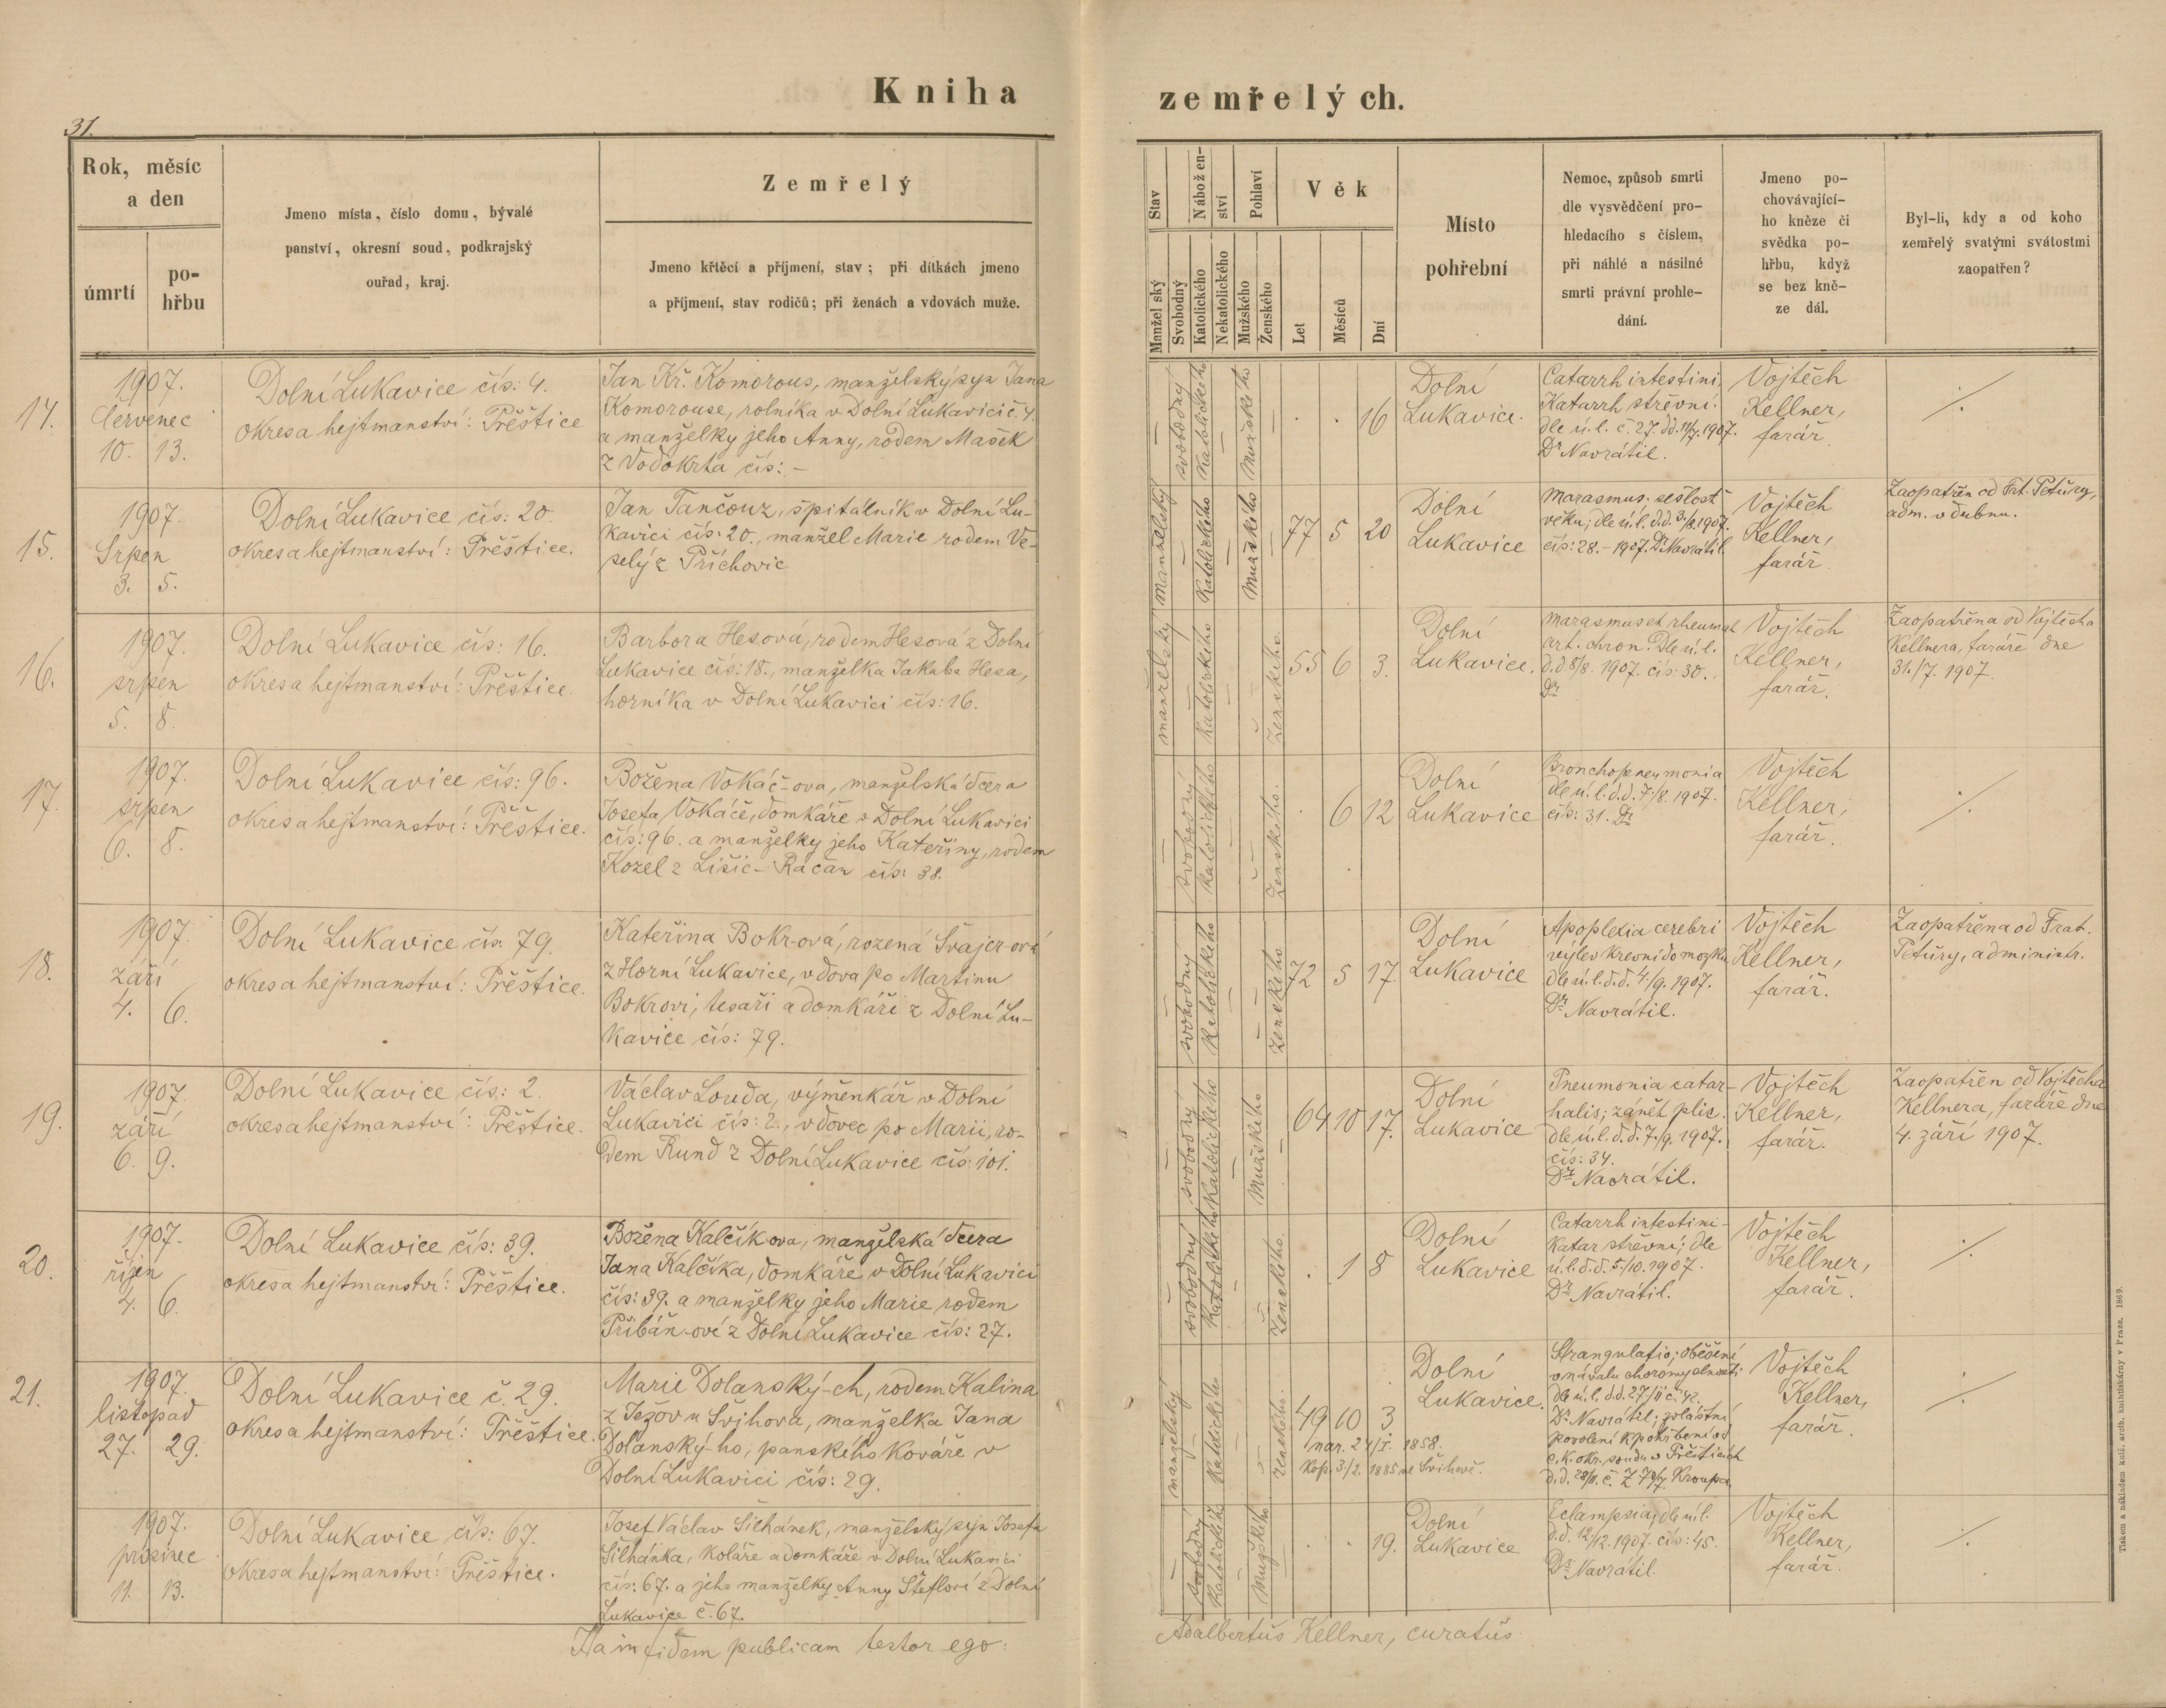 Kniha zemřelých.
31.
Rok, měsíc
a den
úmrtí
po-
hřbu
Jmeno místa, číslo domu, bývalé
panství, okresní soud, podkrajský
ouřad, kraj.
Zemřelý
Jmeno křtěcí a příjmení, stav; při dítkách jmeno
a příjmení, stav rodičů; při ženách a vdovách muže.
Stav
Manželský
Svobodný
Náboženství
Katolického
Nekatolického
Pohlaví
Mužského
Ženského
Věk
Let
Měsíců
Dní
Místo
pohřební
Nemoc, způsob smrti
dle vysvědčení pro-
hledacího s číslem,
při náhlé a násilné
smrti právní prohle-
dání.
Jmeno po-
chovávající-
ho kněze či
svědka po-
hřbu, když
se bez kně-
ze dál.
Byl-li, kdy a od koho
zemřelý svatými svátostmi
zaopatřen?
14.
1907.
Červenec
10. 13.
Dolní Lukavice čís: 4.
okres a hejtmanství: Přeštice
Jan Kř. Komorous, manželský syn Jana
Komorouse, rolníka v Dolní Lukavici č. 4.
a manželky jeho Anny, rodem Mašek
z Vodokrta čís: -
svobodný
Katolického
Mužského
. . 16
Dolní
Lukavice.
Catarrh intestini,
Katarrh střevní.
dle ú. l. č. 27. dd. 11/7. 1907.
Dr Navrátil.
Vojtěch
Kellner,
farář.
./.
15.
1907.
Srpen
3. 5.
Dolní Lukavice čís: 20.
okres a hejtmanství: Přeštice.
Jan Tančouz, špitálník v Dolní Lu-
kavici čís: 20., manžel Marie rodem Ve-
selý z Příchovic
manželský
Katolického
Mužského
77 5 20
Dolní
Lukavice
Marasmus; sešlost
věku; dle ú. l. d.d. 3/8. 1907.
čís: 28. - 1907. Dr Navrátil
Vojtěch
Kellner,
farář.
Zaopatřen od Frt. Petůry,
adm. v dubnu.
16.
1907.
srpen
5. 8.
Dolní Lukavice čís: 16.
okres a hejtmanství: Přeštice
Barbora Hesová, rodem Hesová z Dolní
Lukavice čís: 18., manželka Jakuba Hesa,
horníka v Dolní Lukavici čís: 16.
manželský
Katolického
Ženského.
55 6 3.
Dolní
Lukavice.
Marasmus et rheumat
art. chron. Dle ú. l.
d.d 8/8. 1907. čís: 30.
Dr
Vojtěch
Kellner,
farář.
Zaopatřena od Vojtěcha
Kellnera, faráře dne
31./7. 1907.
17.
1907.
srpen
6. 8.
Dolní Lukavice čís: 96.
okres a hejtmanství: Přeštice.
Božena Vokáč-ova, manželská dcera
Josefa Vokáče, domkáře v Dolní Lukavici
čís: 96. a manželky jeho Kateřiny, rodem
Kozel z Lišic-Račan čís: 38.
svobodný
Katolického
Ženského.
. 6 12
Dolní
Lukavice
Bronchopneumonia
dle ú. l. d.d. 7/8. 1907.
čís: 31. Dr
Vojtěch
Kellner,
farář.
./.
18.
1907.
září
4. 6.
Dolní Lukavice čís. 79.
okres a hejtmanství: Přeštice.
Kateřina Bokr-ová, rozená Švajcr-ová
z Horní Lukavice, vdova po Martinu
Bokrovi, tesaři a domkáři z Dolní Lu-
kavice čís: 79.
svobodný
Katolického
Ženského
72 5 17.
Dolní
Lukavice
Apoplexia cerebri
výlev krevní do mozku
dle ú. l. d.d. 4/9. 1907.
Dr Navrátil.
Vojtěch
Kellner,
farář.
Zaopatřena od Frat.
Petůry, administr.
19.
1907.
září
6. 9.
Dolní Lukavice čís: 2.
okres a hejtmanství: Přeštice.
Václav Louda, výměnkář v Dolní
Lukavici čís: 2., vdovec po Marii, ro-
dem Rund z Dolní Lukavice čís: 101.
svobodný
Katolického
Mužského
64 10 17.
Dolní
Lukavice
Pneumonia catar-
halis; zánět plic.
dle ú. l. d.d. 7./9. 1907.
čís: 34.
Dr Navrátil.
Vojtěch
Kellner,
farář.
Zaopatřen od Vojtěcha
Kellnera, faráře dne
4. září 1907.
20.
1907.
říjen
4. 6.
Dolní Lukavice čís: 39.
okres a hejtmanství: Přeštice.
Božena Kalčíkova, manželská dcera
Jana Kalčíka, domkáře v Dolní Lukavici
čís: 39. a manželky jeho Marie rodem
Přibáň-ové z Dolní Lukavice čís: 27.
svobodný
Katolického
Ženského.
. 1 8
Dolní
Lukavice
Catarrh intestini-
Katar střevní; dle
ú. l. d.d. 5./10. 1907.
Dr Navrátil.
Vojtěch
Kellner,
farář.
./.
21.
1907.
listopad
27. 29.
Dolní Lukavice č. 29.
okres a hejtmanství: Přeštice.
Marie Dolanský-ch, rodem Kalina
z Ježov u Švihova, manželka Jana
Dolanský-ho, panského kováře v
Dolní Lukavici čís: 29.
manželský
Katolického
Ženského.
49 10 3
nar. 24/I. 1858.
Kop. 3/2. 1885 ve Švihově.
Dolní
Lukavice.
Strangulatio; oběšení
v návalu choromyslnosti
dle ú. l. d.d. 27/11 č. 42.
Dr Navrátil; zvláštní
povolení k pohřbení od
c. k. okr. soudu v Přešticích
d.d. 28/11. č. Kroupa
Vojtěch
Kellner,
farář.
./.
1907.
prosinec
11. 13.
Dolní Lukavice čís: 67.
okres a hejtmanství: Přeštice.
Josef Václav Šilhánek, manželský syn Josefa
Šilhánka, koláře a domkáře v Dolní Lukavici
čís: 67. a jeho manželky Anny Šteflové z Dolní
Lukavice č. 67.
svobodný
Katolického
Mužského
. . 19.
Dolní
Lukavice
Eclampsia; dle ú. l.
d.d. 12/12. 1907. čís: 45.
Dr Navrátil.
Vojtěch
Kellner,
farář.
./.
Ha in fidem publicam testor ego: Adalbertus Kellner, curatus
Tiskem a nákladem kníž. arcib. knihtiskárny v Praze. 1869.